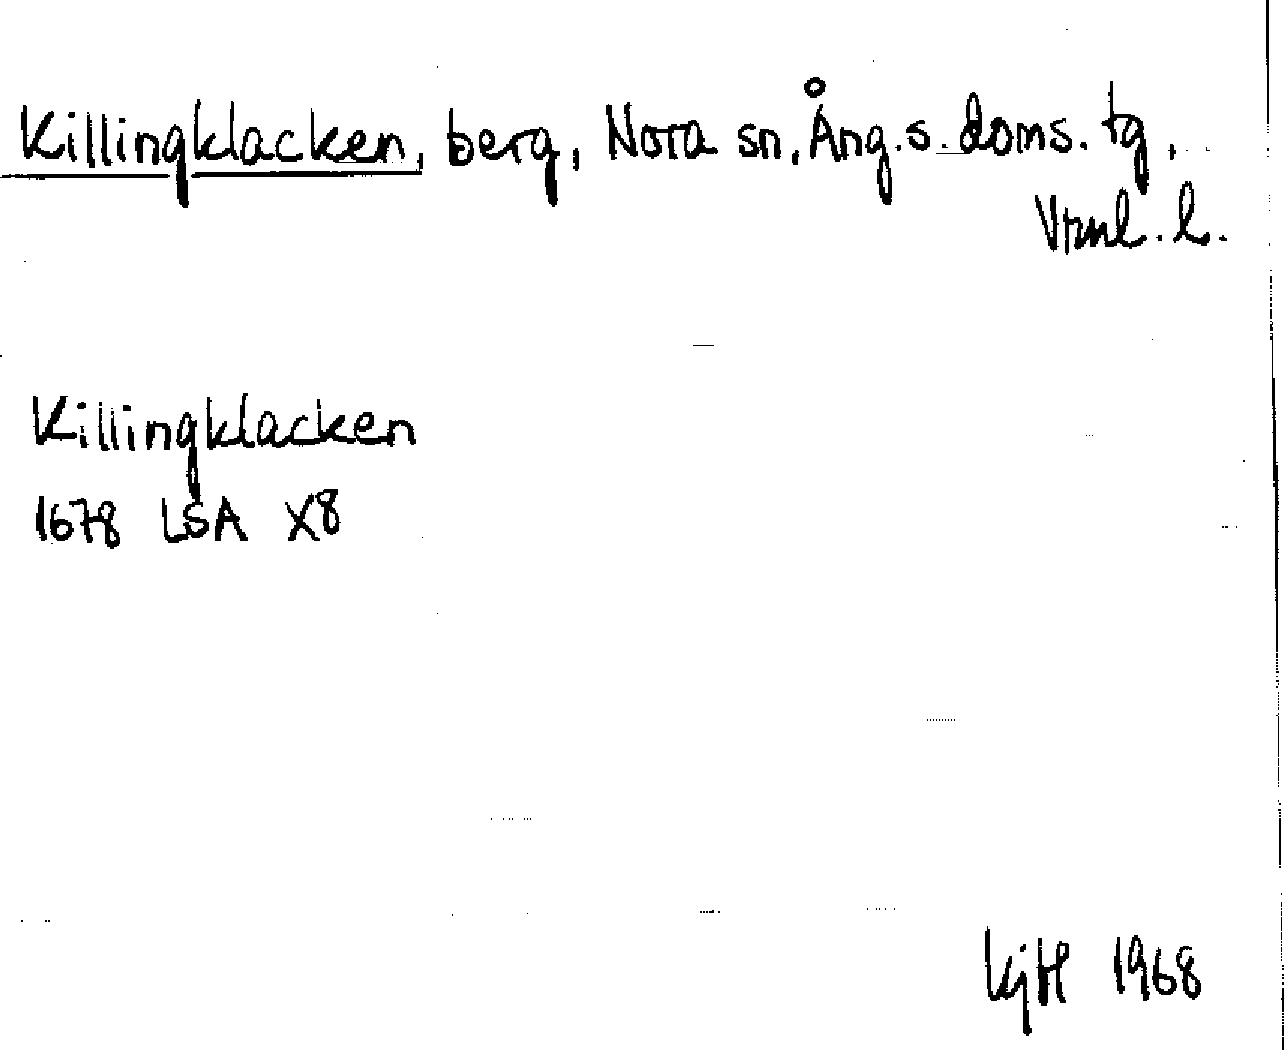 Killingklacken, berg, Nora sn, Ång.s. doms. tg,
Vrml. l.
Killingklacken
1678 LSA X8
KjH 1968